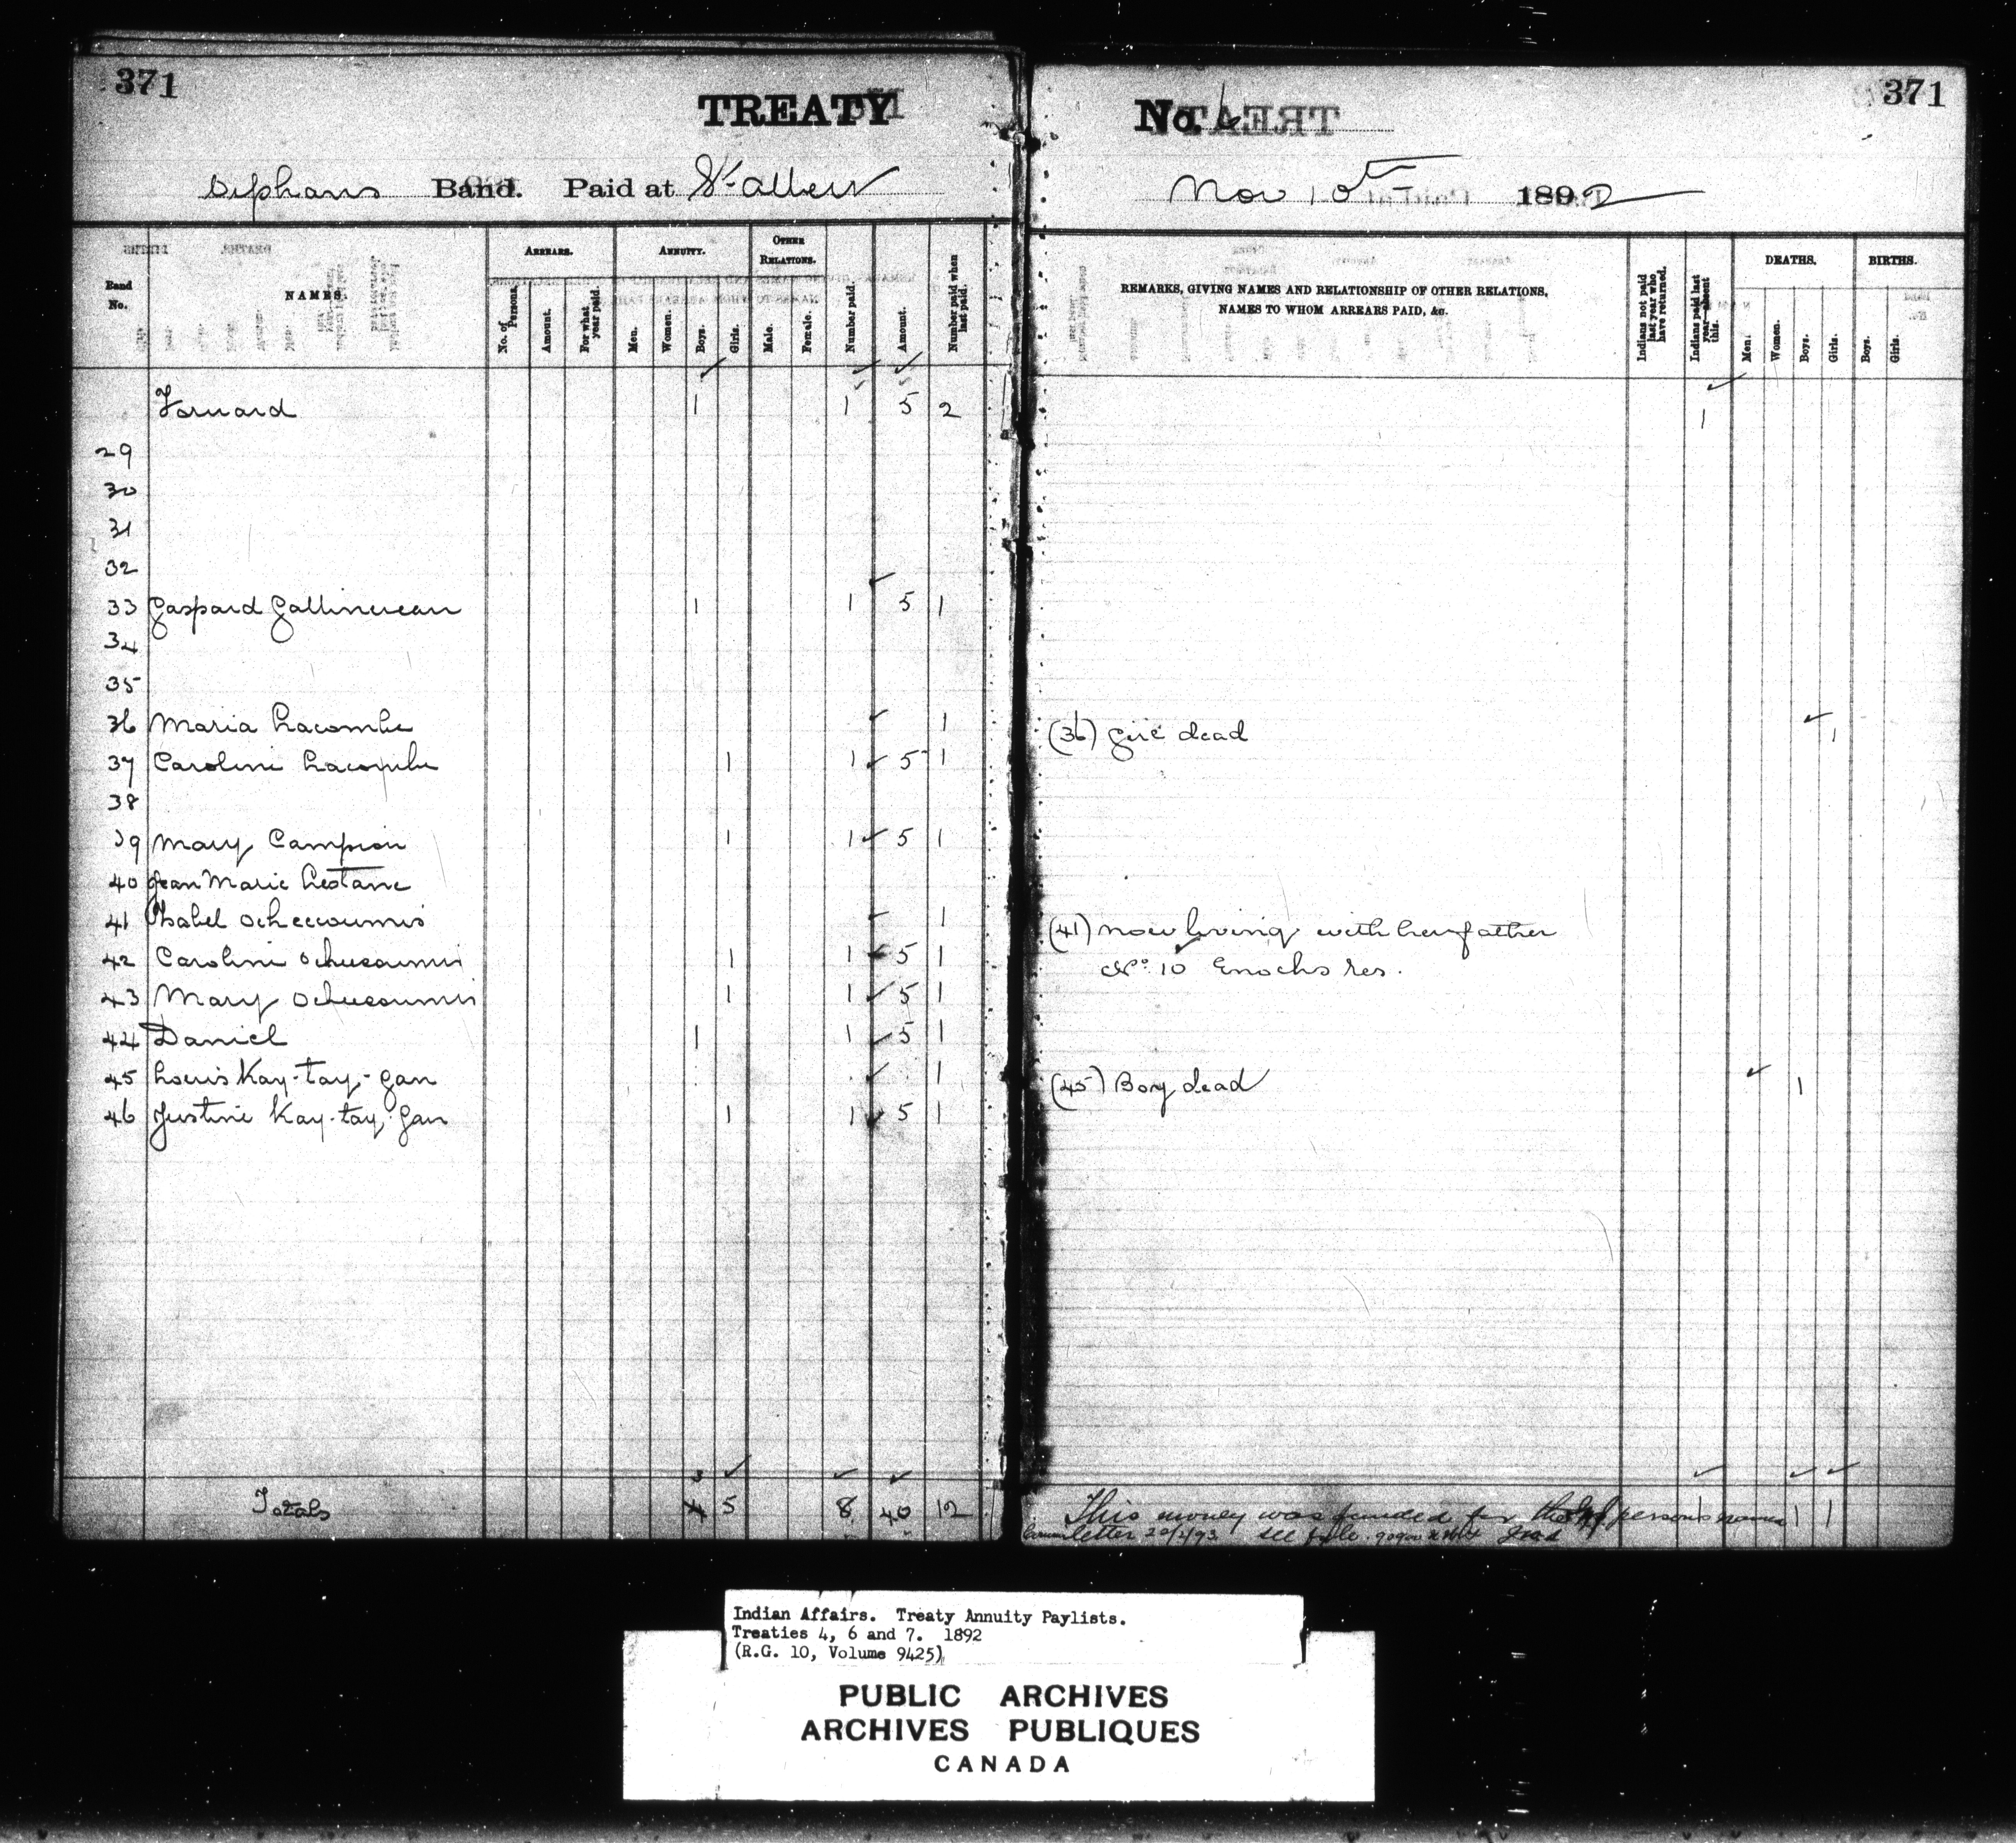 371
TREATY
Orphans Band. Paid at St. Albert
Band No.
NAMES
ARREARS.
No. of Persons.
Amount.
For what year paid.
ANNUITY.
Men.
Women.
Boys.
Girls.
OTHER RELATIONS.
Male.
Female.
Number paid.
Amount.
Number paid when last paid.
Forward 1 1 5 2
29
30
31
32
33 Gaspard 1 1 5 1
34
35
36 Maria Lacombe 1
37 Caroline Lacombe 1 1 5 1
38
39 Mary Campion 1 1 5 1
40 Jean Marie Lestanc
41 Isabel 1
42 Caroline 1 1 5 1
43 Mary 1 1 5 1
44 Daniel 1 1 5 1
45 Louis Kay-tay-gan 1
46 Justine Kay-tay-gan 1 1 5 1
Totals 3 5 8 40 12
371
No. 6
Nov 10th 1892
REMARKS, GIVING NAMES AND RELATIONSHIP OF OTHER RELATIONS,
NAMES TO WHOM ARREARS PAID, &c.
Indians not paid last year who have returned.
Indians paid last year absent this.
DEATHS.
Men.
Women.
Boys.
Girls.
BIRTHS.
Boys.
Girls.
1
(36) Girl dead 1
(41) now living with her father
No. 10 Enochs res.
(45) Boy dead 1
This money was funded for the persons 1 1 1
letter see file
Indian Affairs. Treaty Annuity Paylists.
Treaties 4, 6 and 7. 1892
(R.G. 10, Volume 9425)
PUBLIC ARCHIVES
ARCHIVES PUBLIQUES
CANADA